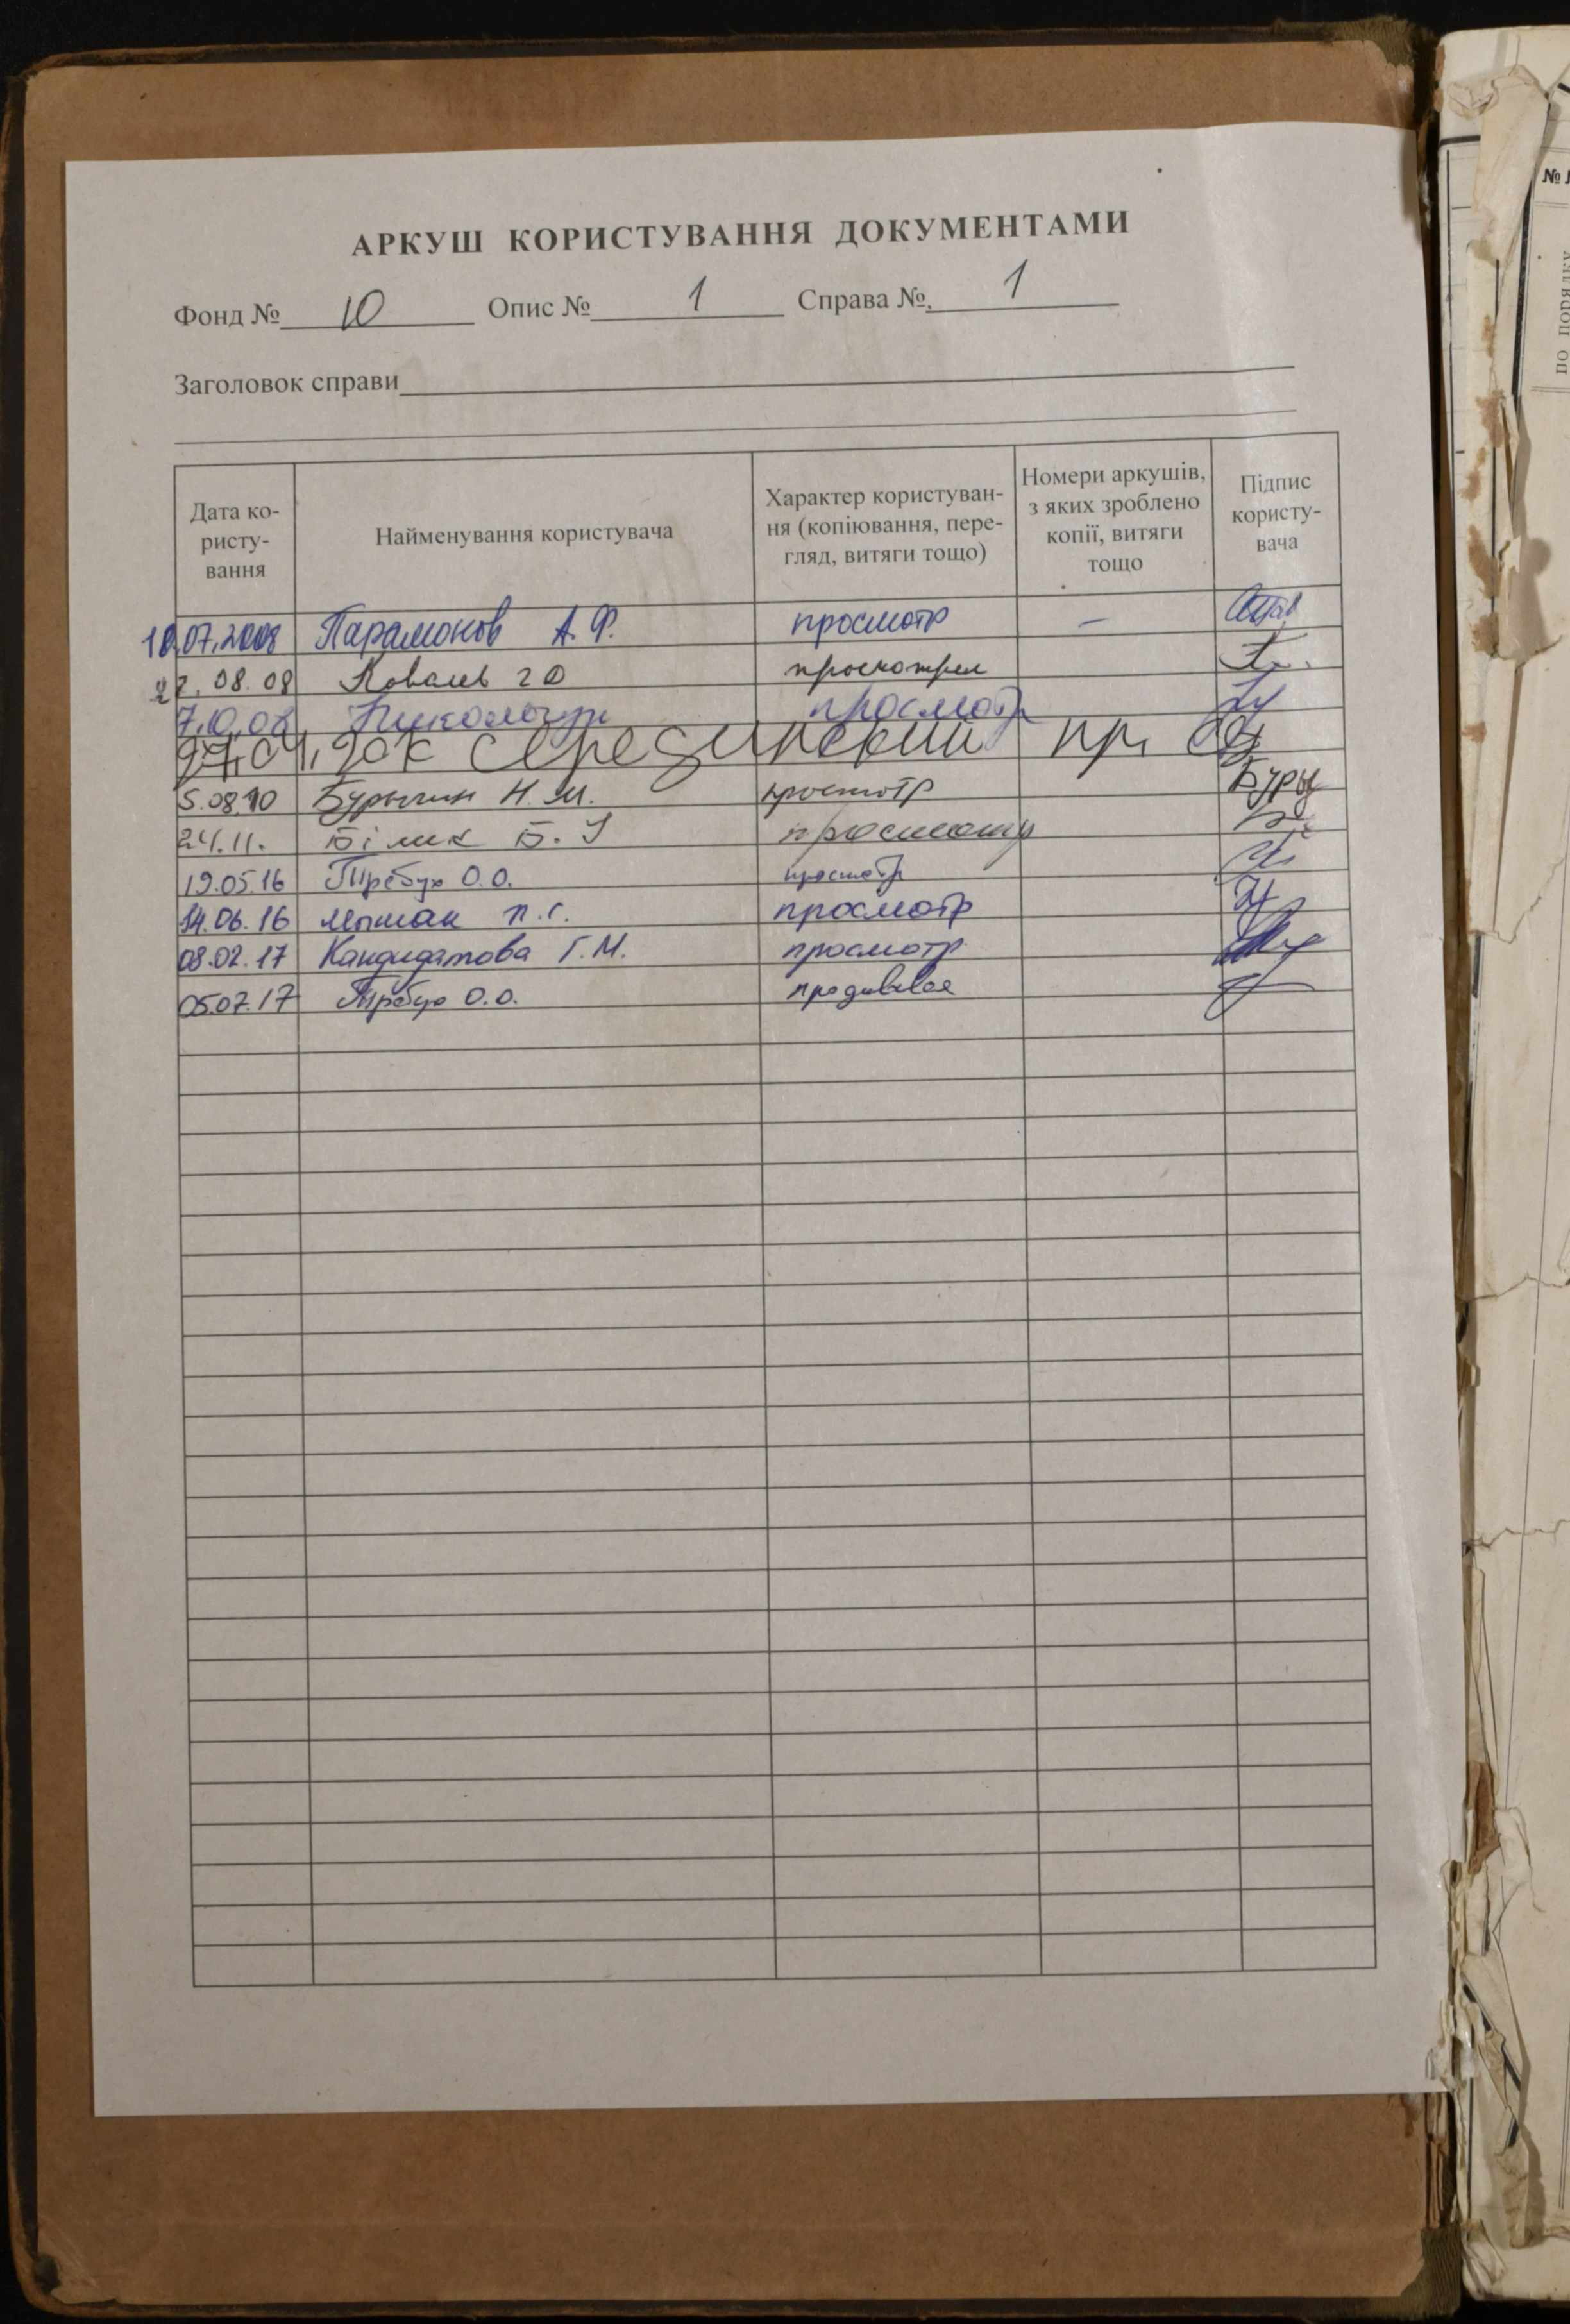 АРКУШ КОРИСТУВАННЯ ДОКУМЕНТАМИ
Фонд № 10 Опис № 1 Справа № 1
Заголовок справи
Дата ко-
ристу-
вання
Найменування користувача
Характер користуван-
ня (копіювання, пере-
гляд, витяги тощо)
Номери аркушів,
з яких зроблено
копії, витяги
тощо
Підпис
користу-
вача
10.07.2008 Парамонов А.Ф. просмотр –
27.08.08 Коваль просмотрел
7.10.08 просмотр
Серединский пр.
5.08.10 Н.М. просмотр Буры
24.11. Білик Б. просмотр
19.05.16 Требух О.О. просмотр
14.06.16 П.Г. просмотр
08.02.17 Кандидатова Г.М. просмотр
05.07.17 Требух О.О.
№
по порядку